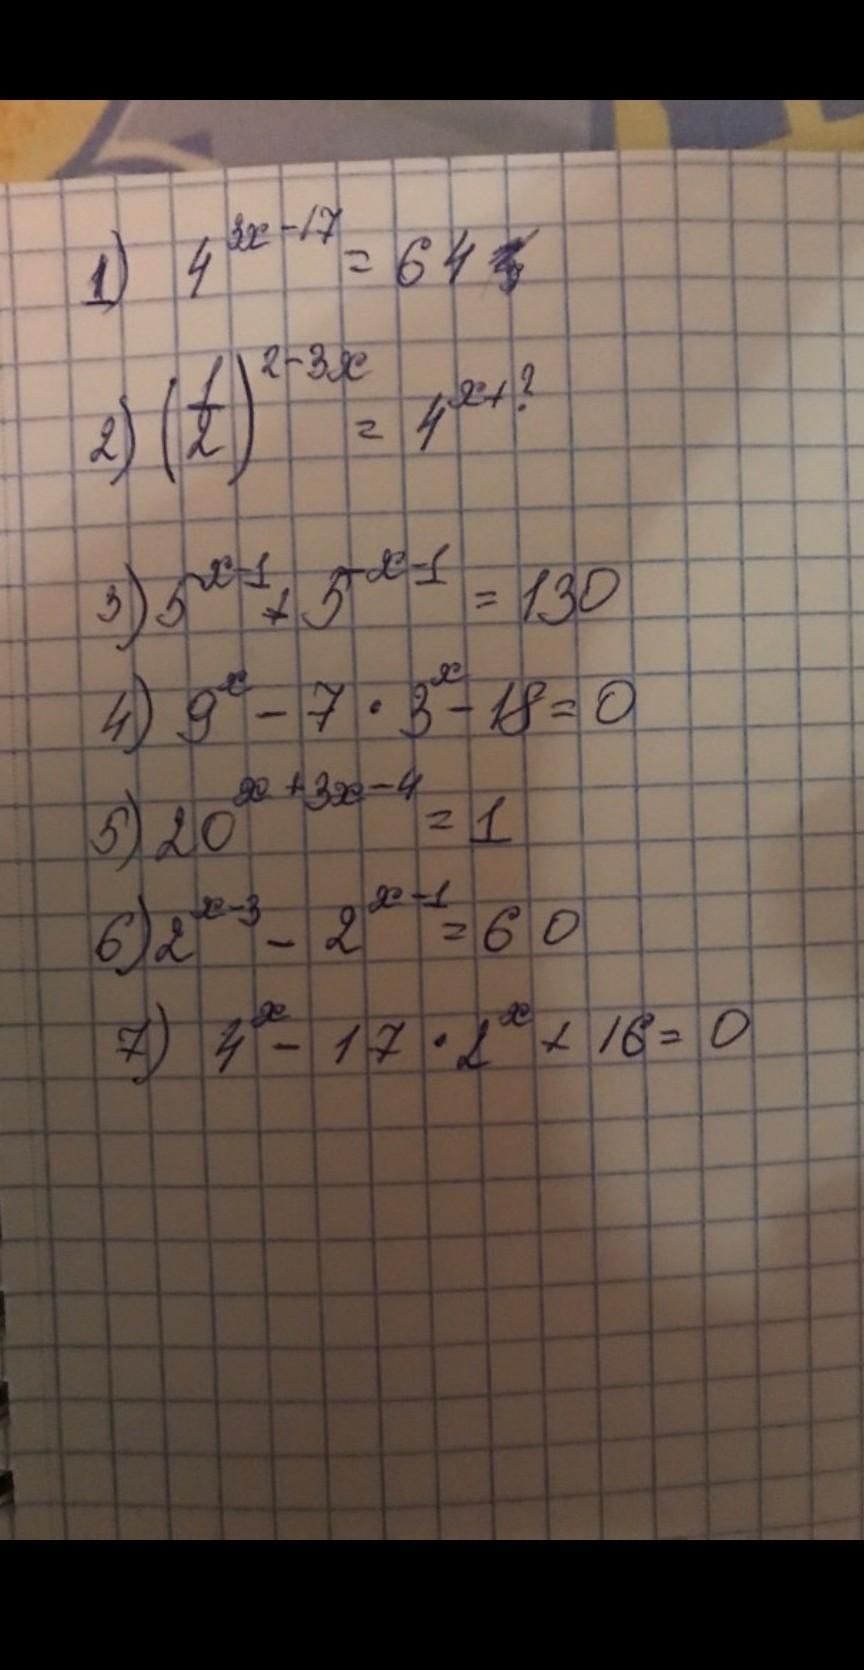 1) 4^{3x-17} = 64
2) (1/2)^{2-3x} = 4^{x+?}
3) 5^{x-1} + 5^{-x-1} = 130
4) 9^x - 7 · 3^x - 18 = 0
5) 20^{x+3x-4} = 1
6) 2^{x-3} - 2^{x-1} = 60
7) 4^x - 17 · 2^x + 16 = 0